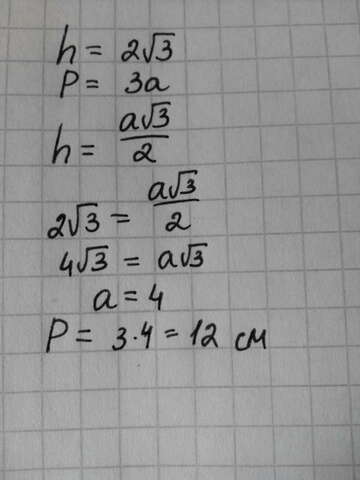 h = 2√3
P = 3a
h = a√3/2
2√3 = a√3/2
4√3 = a√3
a = 4
P = 3·4 = 12 см